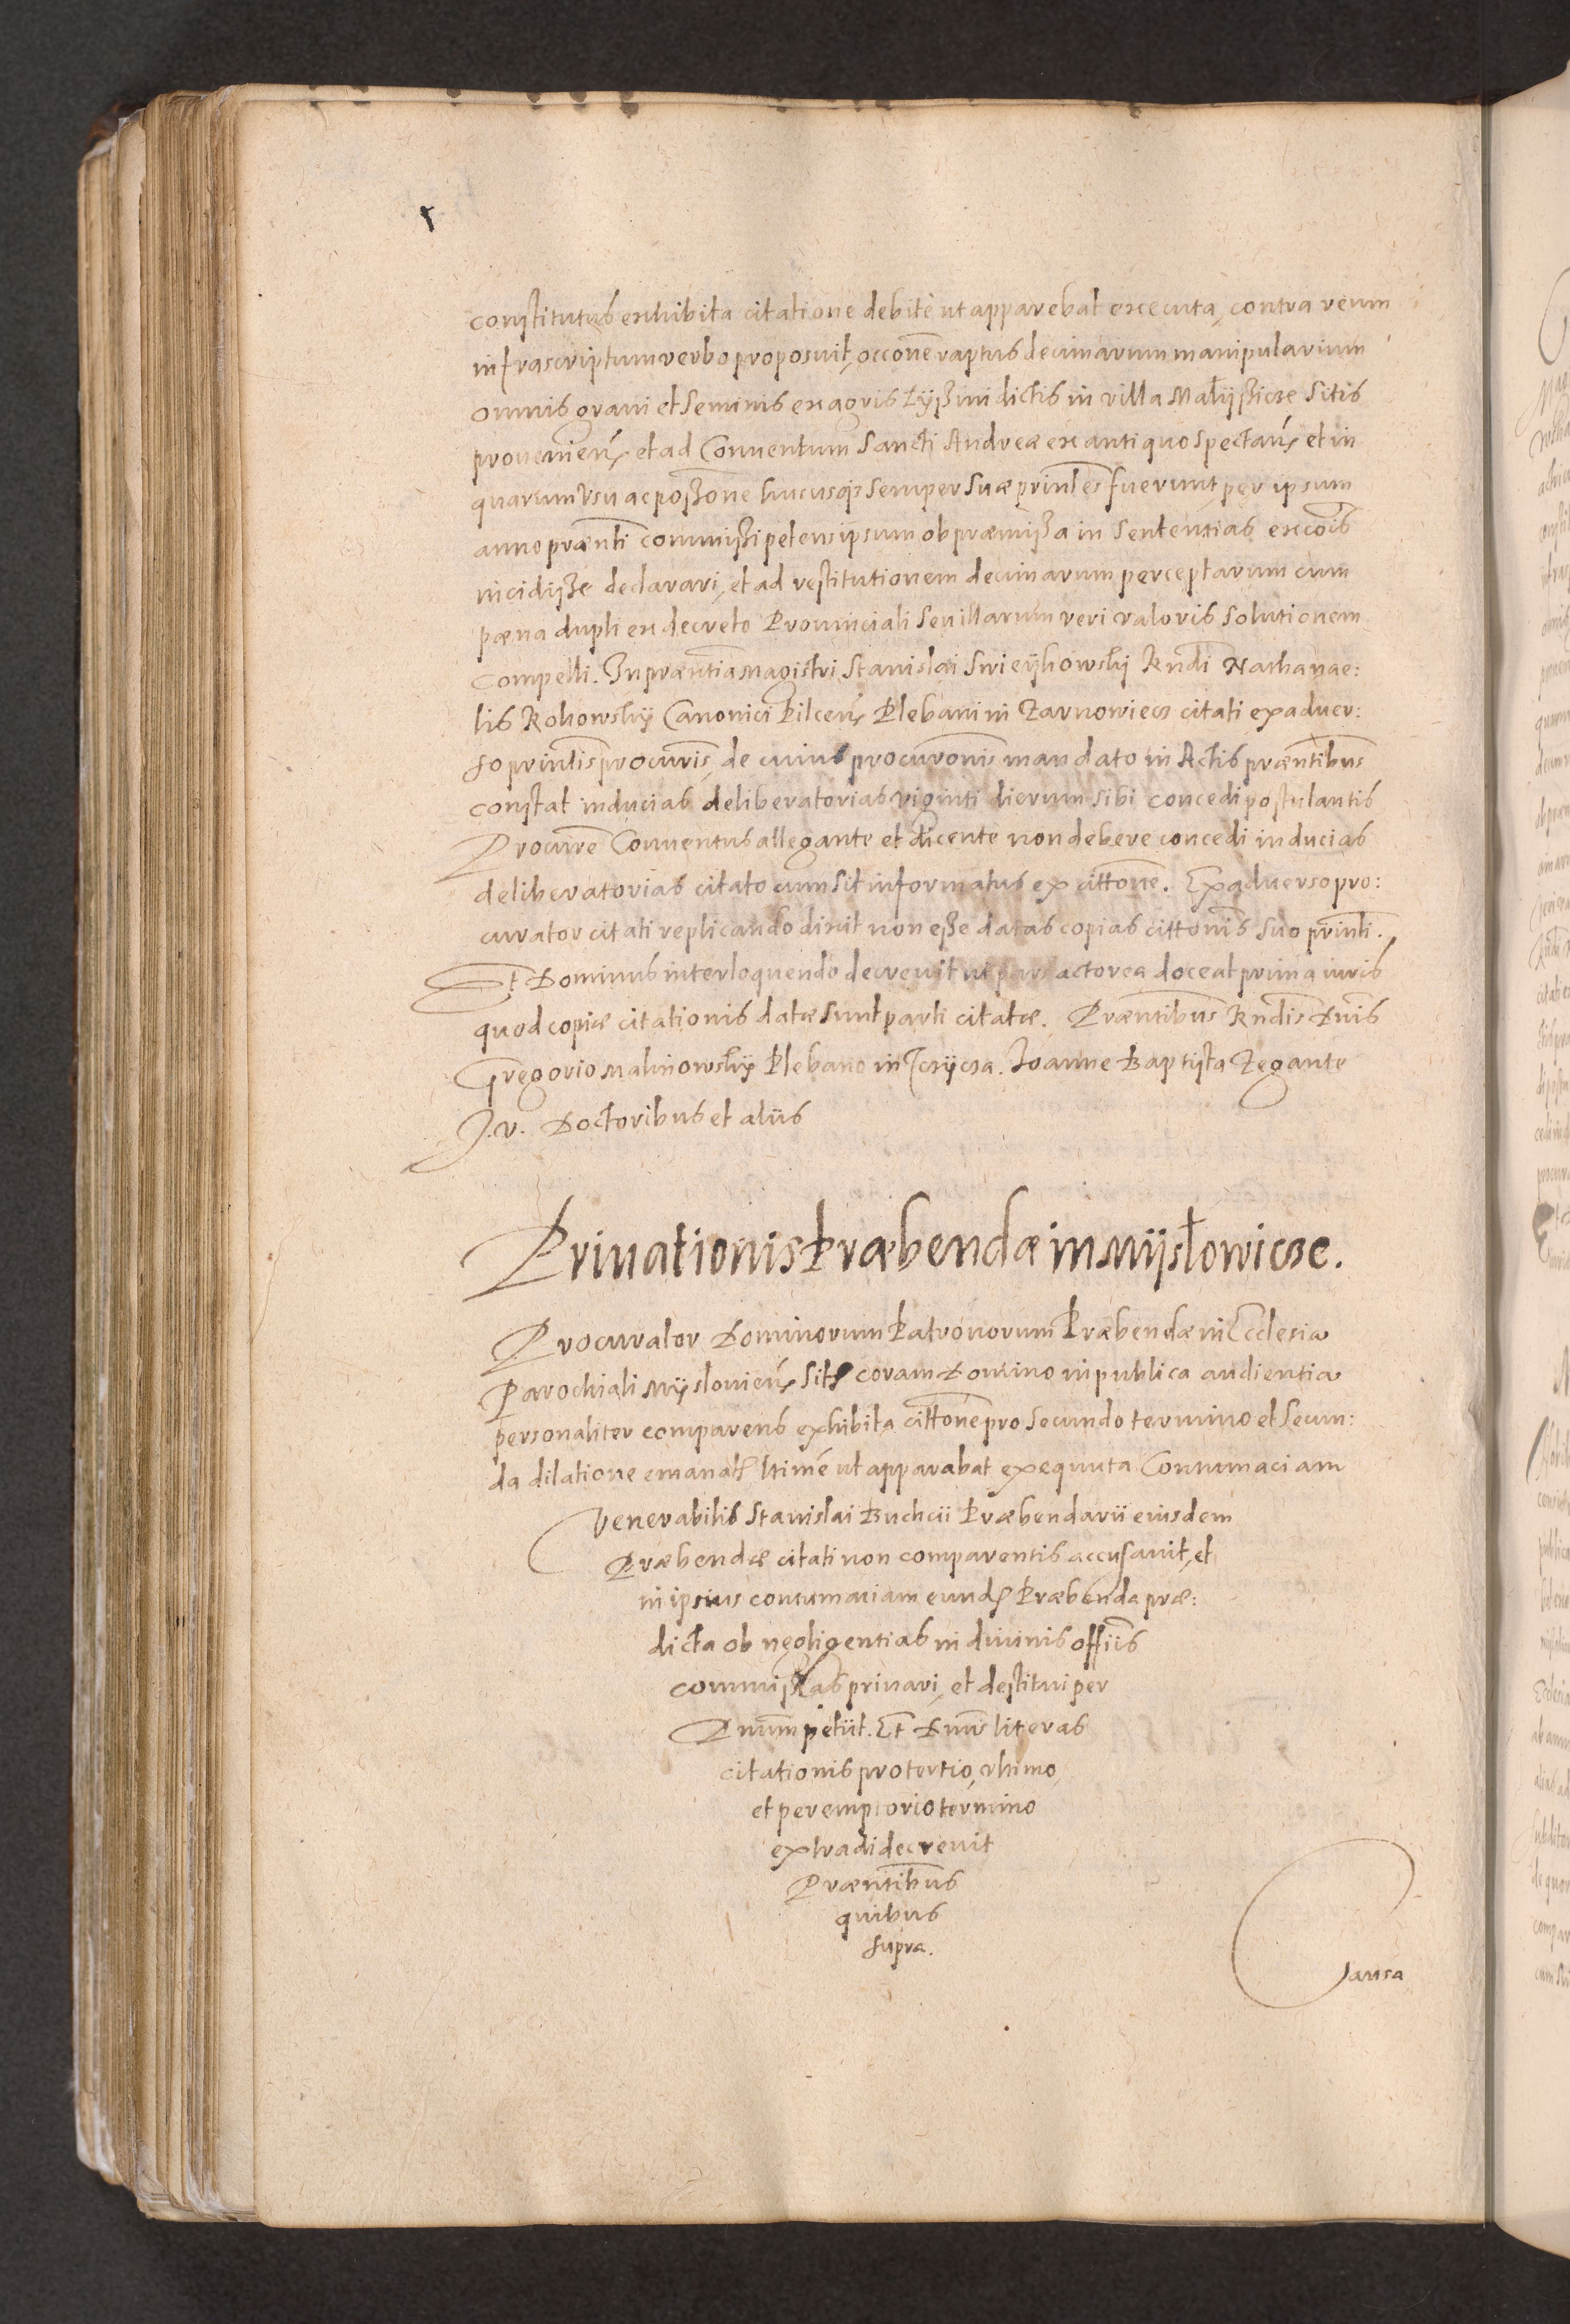 constitutus exhibita citatione debite ut apparebat executa, contra reum
infrascriptum verbo proposuit, occōne raptus decimarum manipularium
omnis grani et seminis ex agris Łyßini dictis in villa Małyßicze sitis
prouenieñ et ad Conuentum Sancti Andreæ ex antiquo spectañ et in
quarum vsu ac poßone hucusq̨ semper suæ prīnles fuerunt, per ipsum
anno præn̄ti commißi petens ipsum ob præmißa in sententias excōis
incidiße declarari, et ad restitutionem decimarum perceptarum cum
pæna dupli ex decreto Prouinciali seu illarum veri valoris solutionem
compelli. In præn̄tia Magistri Stanislai Swieykowsky Rn̄di Nathanae:
lis Rokowsky Canonici Pilceñ Plebani in Żarnowiecz citati ex aduer:
so prīnlis procūris, de cuius procurōnis mandato in Actis præn̄tibus
constat inducias deliberatorias viginti dierum sibi concedi postulantis
Procūre Conuentus allegante et dicente non debere concedi inducias
deliberatorias citato cum sit informatus ex cittōne. Ex aduerso pro:
curator citati replicando dixit non eße datas copias cittōnis suo prīnli.
Et Dominus interloquendo decreuit ut pars actorea doceat prima iuris
quod copiæ citationis datæ sunt parti citatæ. Præn̄tibus Rn̄dis Dn̄is
Gregorio Malinowsky Plebano in Tczycza. Ioanne Baptista Zegante
I. V. Doctoribus et aliis
Priuationis Præbendæ in Mysłowicze.
Procurator Dominorum Patronorum Præbendæ in Ecclesia
Parochiali Mysłouieñ sitæ coram Domino in publica audientia
personaliter comparens exhibita cittōne pro secundo termino et secun:
da dilatione emanať ltime ut apparabat exequuta Contumaciam
Venerabilis Stanislai Buchcii Præbendarii eiusdem
Præbendæ citati non comparentis accusauit, et
in ipsius contumaciam eund̨ Præbenda præ:
dicta ob negligentias in diuinis offiis
commißas priuari, et destitui per
Dn̄um petiit. Et Dn̄us literas
citationis pro tertio, vltimo,
et peremptorio termino
extradi decreuit
Præn̄tibus
quibus
supra.
Causa